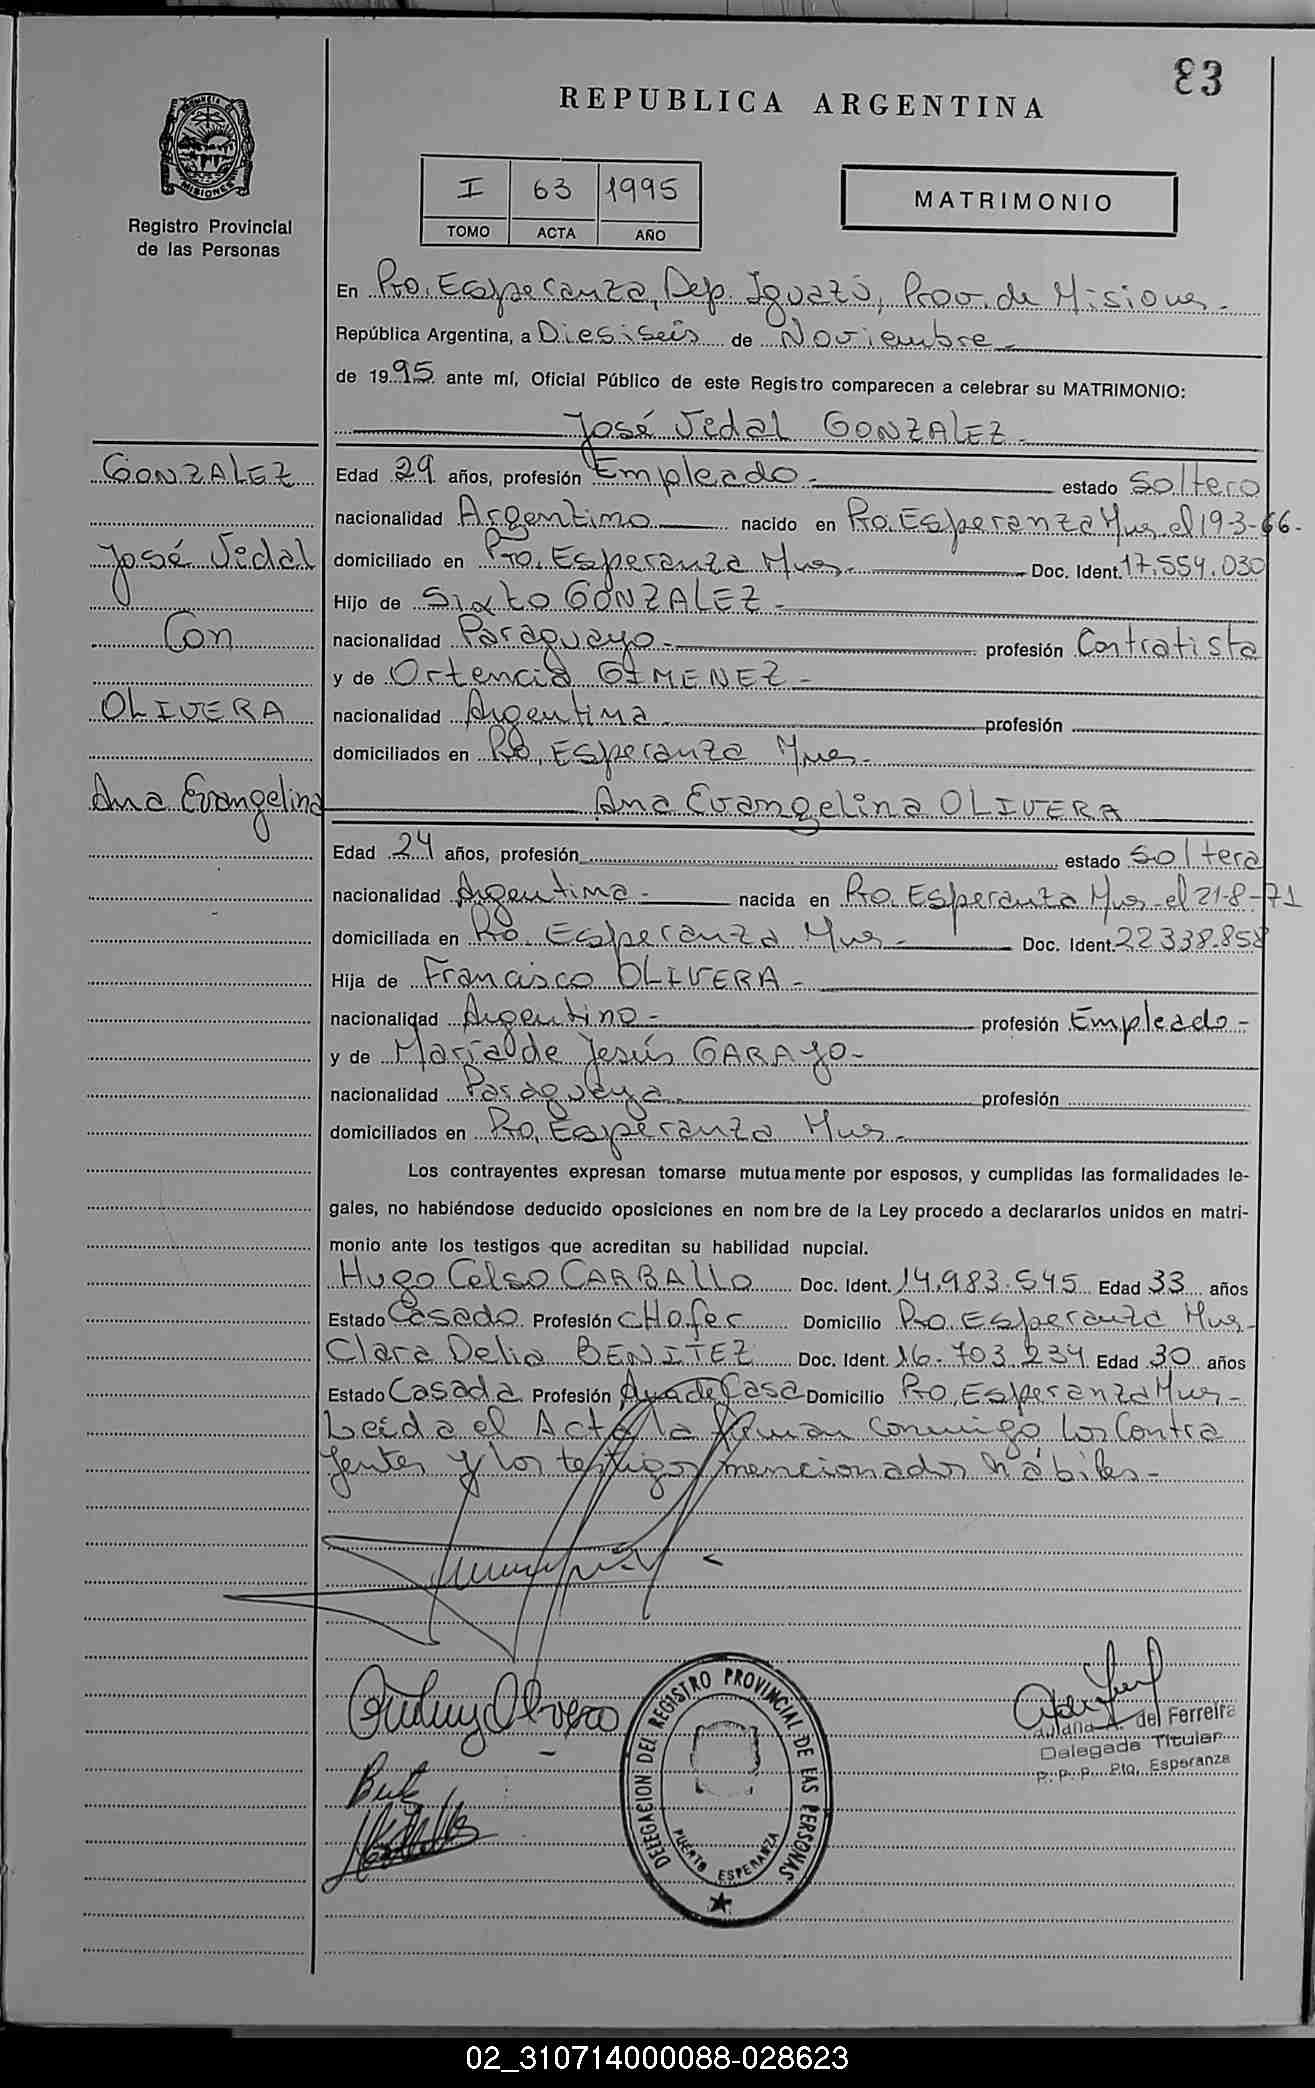 83
REPUBLICA ARGENTINA
PROVINCIA DE MISIONES
Registro Provincial
de las Personas
I 63 1995
TOMO ACTA AÑO
MATRIMONIO
En Pto. Esperanza, Dep. Iguazú, Prov. de Misiones.-
República Argentina, a Diesiseis de Noviembre.-
de 1995 ante mí, Oficial Público de este Registro comparecen a celebrar su MATRIMONIO:
José Vidal GONZALEZ.-
GONZALEZ
José Vidal
Con
OLIVERA
Ana Evangelina
Edad 29 años, profesión Empleado.- estado Soltero
nacionalidad Argentino nacido en Pto. Esperanza Mnes. el 19-3-66.-
domiciliado en Pto. Esperanza Mnes.- Doc. Ident. 17.554.030
Hijo de Sixto GONZALEZ.-
nacionalidad Paraguayo.- profesión Contratista
y de Ortencia GIMENEZ.-
nacionalidad Argentina. profesión
domiciliados en Pto. Esperanza Mnes.-
Ana Evangelina OLIVERA
Edad 24 años, profesión estado Soltera
nacionalidad Argentina.- nacida en Pto. Esperanza Mnes. el 21-8-71
domiciliada en Pto. Esperanza Mnes.- Doc. Ident. 22.338.858
Hija de Francisco OLIVERA.-
nacionalidad Argentino.- profesión Empleado-
y de María de Jesús GARAYO-
nacionalidad Paraguaya.- profesión
domiciliados en Pto. Esperanza Mnes.-
Los contrayentes expresan tomarse mutuamente por esposos, y cumplidas las formalidades le-
gales, no habiéndose deducido oposiciones en nombre de la Ley procedo a declararlos unidos en matri-
monio ante los testigos que acreditan su habilidad nupcial.
Hugo Celso CARBALLO Doc. Ident. 14.983.545 Edad 33 años
Estado Casado Profesión CHofer Domicilio Pto. Esperanza Mnes-
Clara Delia BENITEZ Doc. Ident. 16.703.234 Edad 30 años
Estado Casada Profesión Ama de Casa Domicilio Pto. Esperanza Mnes-
Leida el Acta la firman conmigo los Contra
yentes y los testigos mencionados hábiles-
Olivera
DELEGACION DEL REGISTRO PROVINCIAL DE LAS PERSONAS
PUERTO ESPERANZA
del Ferreira
Delegada Titular
Pto. Esperanza
02_310714000088-028623